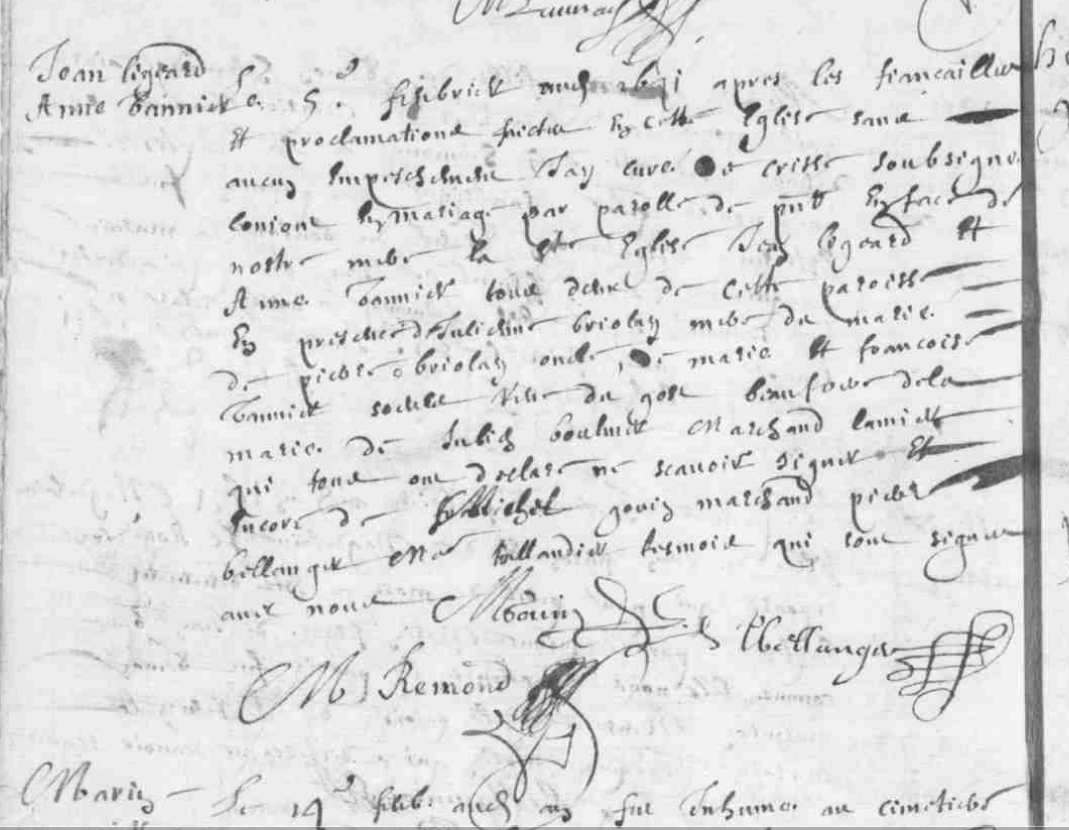 Jean Legeard
Anne Vannier
Le 5e febvrier aud apres les fiancailles
et proclamations faites en cette Eglise sans
aucun Impeschement Jay curé de crissé soubsigné
conjoint en mariage par parolle de pnt En face de
nostre mere la ste Eglise Jean legeard Et
Anne Vannier tous deux de cette paroisse
En presence de Julienne briolay mere du marié
de pierre briolay oncle de marié Et francoise
Vannier soeur beau frere de la
mariée de Julien boulmer Marchand lamier
qui tous ont declaré ne scavoir signer Et
Encore de Michel gouin marchand pierre
bellanger Me taillandier tesmoins qui sont signez
avec nous
MGouin
PBellanger
M Remond
Marin
Le 14e feb aud an fut Inhumé au cimetiere